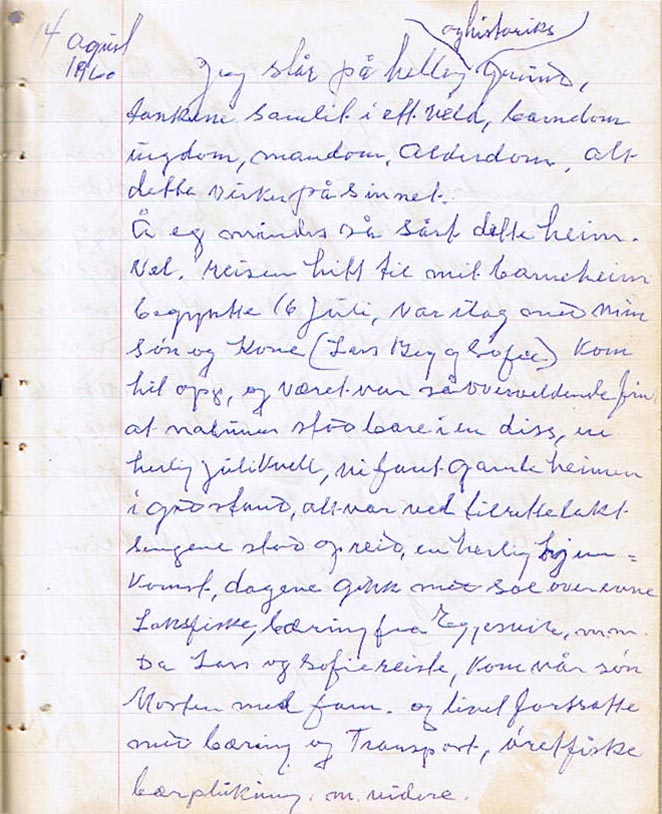 14 agust
1960
og historiks
Jeg står på hellig Grund,
tankene samlet i ett veld, barndom
ungdom, mandom, Alderdom, alt
dette virker på sinnet.
Å eg mindes så sårt dette heim.
Vel, reisen hitt til mit barneheim
begynte 16 Juli, var ilag med min
søn og Kone (Lars Berg og Sofie) Kom
hit opp, og været var så overveldende fin
at naturen stod bare i en diss, en
herlig juliKvell, vi fant gamle heimen
i god stand, alt var vel tilrettelakt
sengene stod opreid, en herlig hjem=
Komst, dagene gikk med sol over evne
Laksfiske, bæring fra, m.m.
Da Lars og Sofie reiste, Kom vår søn
Morten med fam. og livet fortsatte
med bæring og Transport, øretfiske
bærplukning. m. videre.